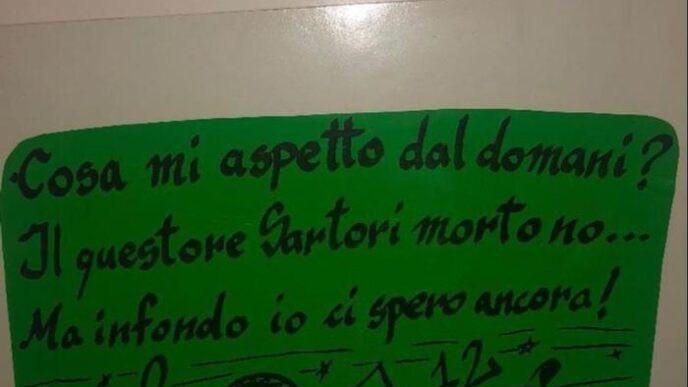 Cosa mi aspetto dal domani?
Il questore Sartori morto no...
Ma infondo io ci spero ancora!